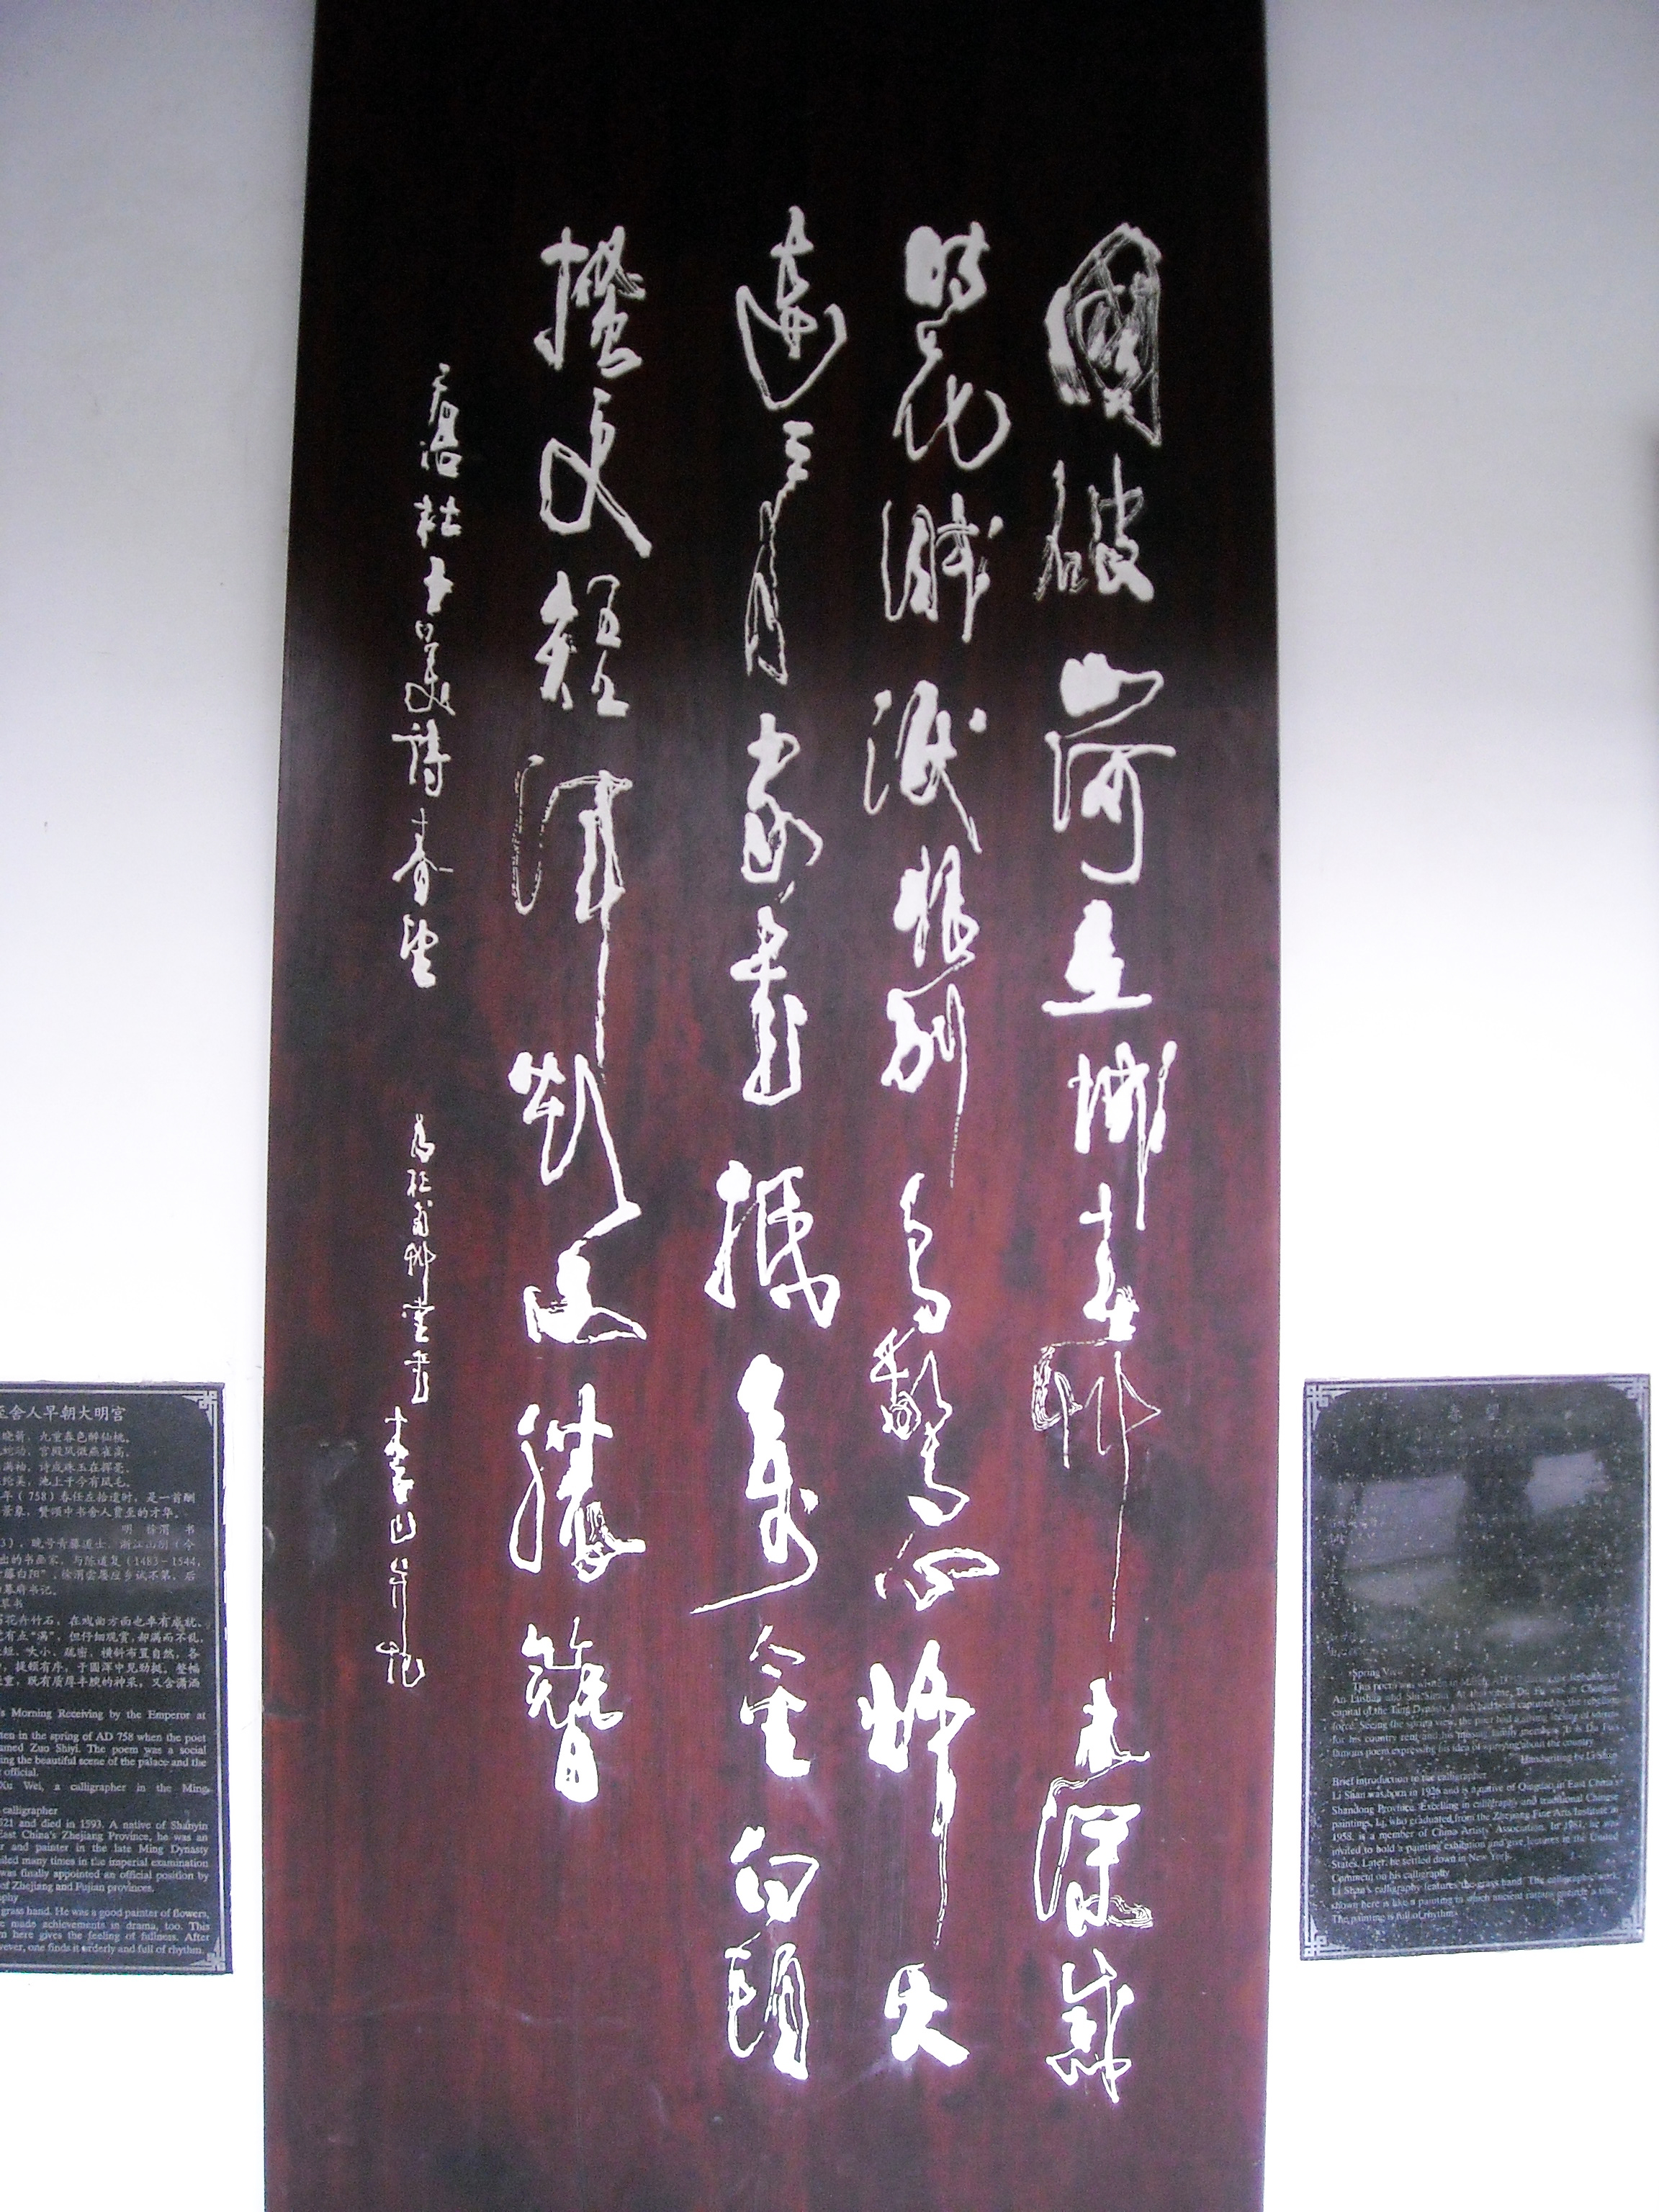 國破山河在城春艸木深感
時花濺淚恨別鳥驚心烽火
連三月家書抵萬金白頭
搔更短渾欲不勝簪
杜子美詩春望 為杜甫艸堂書 李山并記
至舍人早朝大明宫
晓箭，九重春色醉仙桃。
蛇动，宫殿风微燕雀高。
满袖，诗成珠玉在挥毫。
纶美，池上于今有凤毛。
年（758）春任左拾遗时，是一首酬
景象，赞颂中书舍人贾至的才华。
明 徐渭 书
3），晚号青藤道士，浙江山阴（今
出的书画家，与陈道复（1483－1544，
藤白阳"，徐渭尝屡应乡试不第，后
幕府书记。
草书
花卉竹石，在戏曲方面也卓有成就。
有点"满"，但仔细观赏，却满而不乱，
短、大小、疏密，横斜布置自然，各
，提顿有序，于圆浑中见劲挺，整幅
重，既有质厚丰腴的神采，又含潇洒
s Morning Receiving by the Emperor at
ten in the spring of AD 758 when the poet
amed Zuo Shiyi. The poem was a social
ing the beautiful scene of the palace and the
official.
Xu Wei, a calligrapher in the Ming
calligrapher
521 and died in 1593. A native of Shanyin
East China's Zhejiang Province, he was an
r and painter in the late Ming Dynasty
iled many times in the imperial examination
was finally appointed an official position by
of Zhejiang and Fujian provinces.
phy
grass hand. He was a good painter of flowers,
e made achievements in drama, too. This
n here gives the feeling of fullness. After
wever, one finds it orderly and full of rhythm.
春望
Spring View
This poem was written in March, 757 during the Rebellion of
An Lushan and Shi Siming. At that time, Du Fu was in Chang'an,
capital of the Tang Dynasty, which had been captured by the rebellion
force. Seeing the spring view, the poet had a strong feeling of
for his country rent and his missing family members. It is Du Fu's
famous poem expressing his idea of worrying about the country.
Handwriting by Li Shan
Brief introduction to the calligrapher
Li Shan was born in 1926 and is a native of Qingdao in East China's
Shandong Province. Excelling in calligraphy and traditional Chinese
paintings, Li, who graduated from the Zhejiang Fine Arts Institute in
1958, is a member of China Artists' Association. In 1981, he was
invited to hold a painting exhibition and give lectures in the United
States. Later, he settled down in New York.
Comment on his calligraphy
Li Shan's calligraphy features the grass hand. The calligraphic work
shown here is like a painting in which ancient rattans surround a tree.
The painting is full of rhythm.